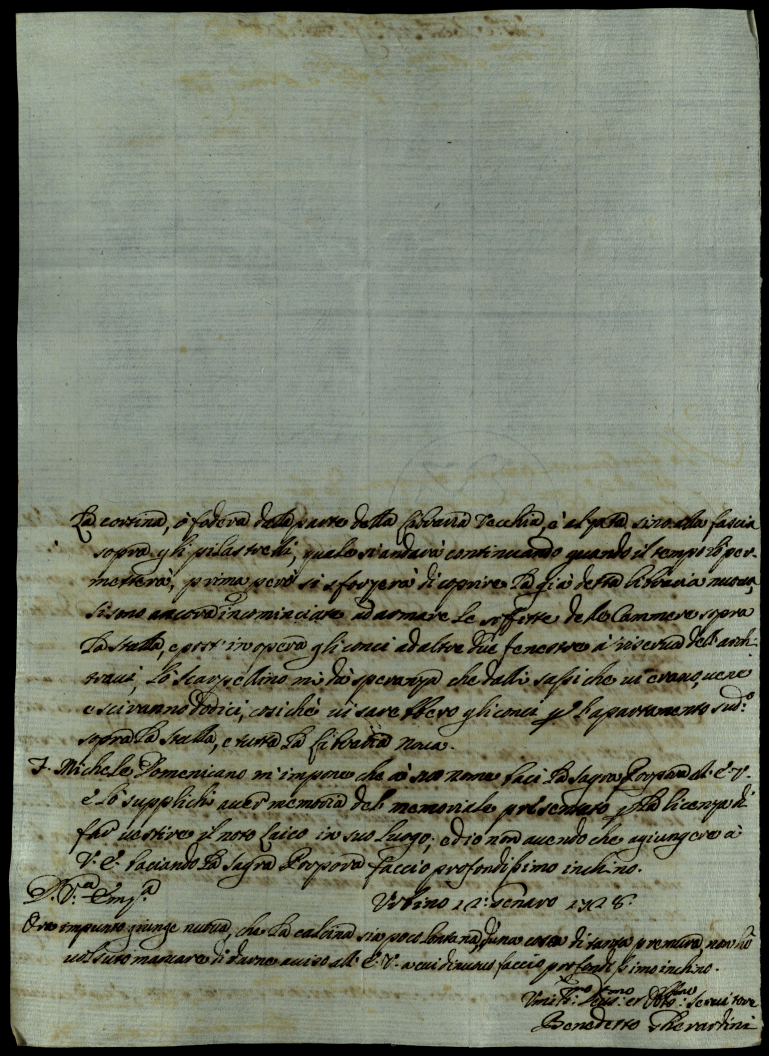 La cortina, ò fodera dalla parte della Libraria Vecchia, è alzata sino alla fascia
sopra gli pilastrelli, quale si andarà continuando quando il tempo lo per-
metterà, prima però si sforzerà di coprire la già detta libraria nuova,
si sono ancora incominciate ad armare le soffitte delle Cammere sopra
la stalla, e post' in opera gli conci ad altre due fenestre à riserva dell' archi-
travi, Lo scarpellino mi dà speranza che dalli sassi che vi erano, vene
esciranno dodici, cosi che vi sarebbero gli conci p l'apartamento sud.º
sopra la stalla, e tutta la Libraria nova.
F. Michele Domenicano m'impone che à suo nome baci la Sagra Porpora al. E. V.
e lo supplichi aver memoria del memoriale presentato p la licenza di
far vestire il noto Laico in suo luogo; ed io non avendo che agiungere à
V. E. baciando la Sagra Porpora faccio profondissimo inchino.
D. V.ra Em.za Urbino 12: Genaro 1728.
Ora impunto giunge nuova, che la calcina sia poco lontana, d'una cosa di tanta premura, non hò
volsuto mancare di darne aviso all' E. V. a cui di nuovo faccio profondissimo inchino.
Umil.mo Dev.mo et Obb.mo servitore
Benedetto Gherardini